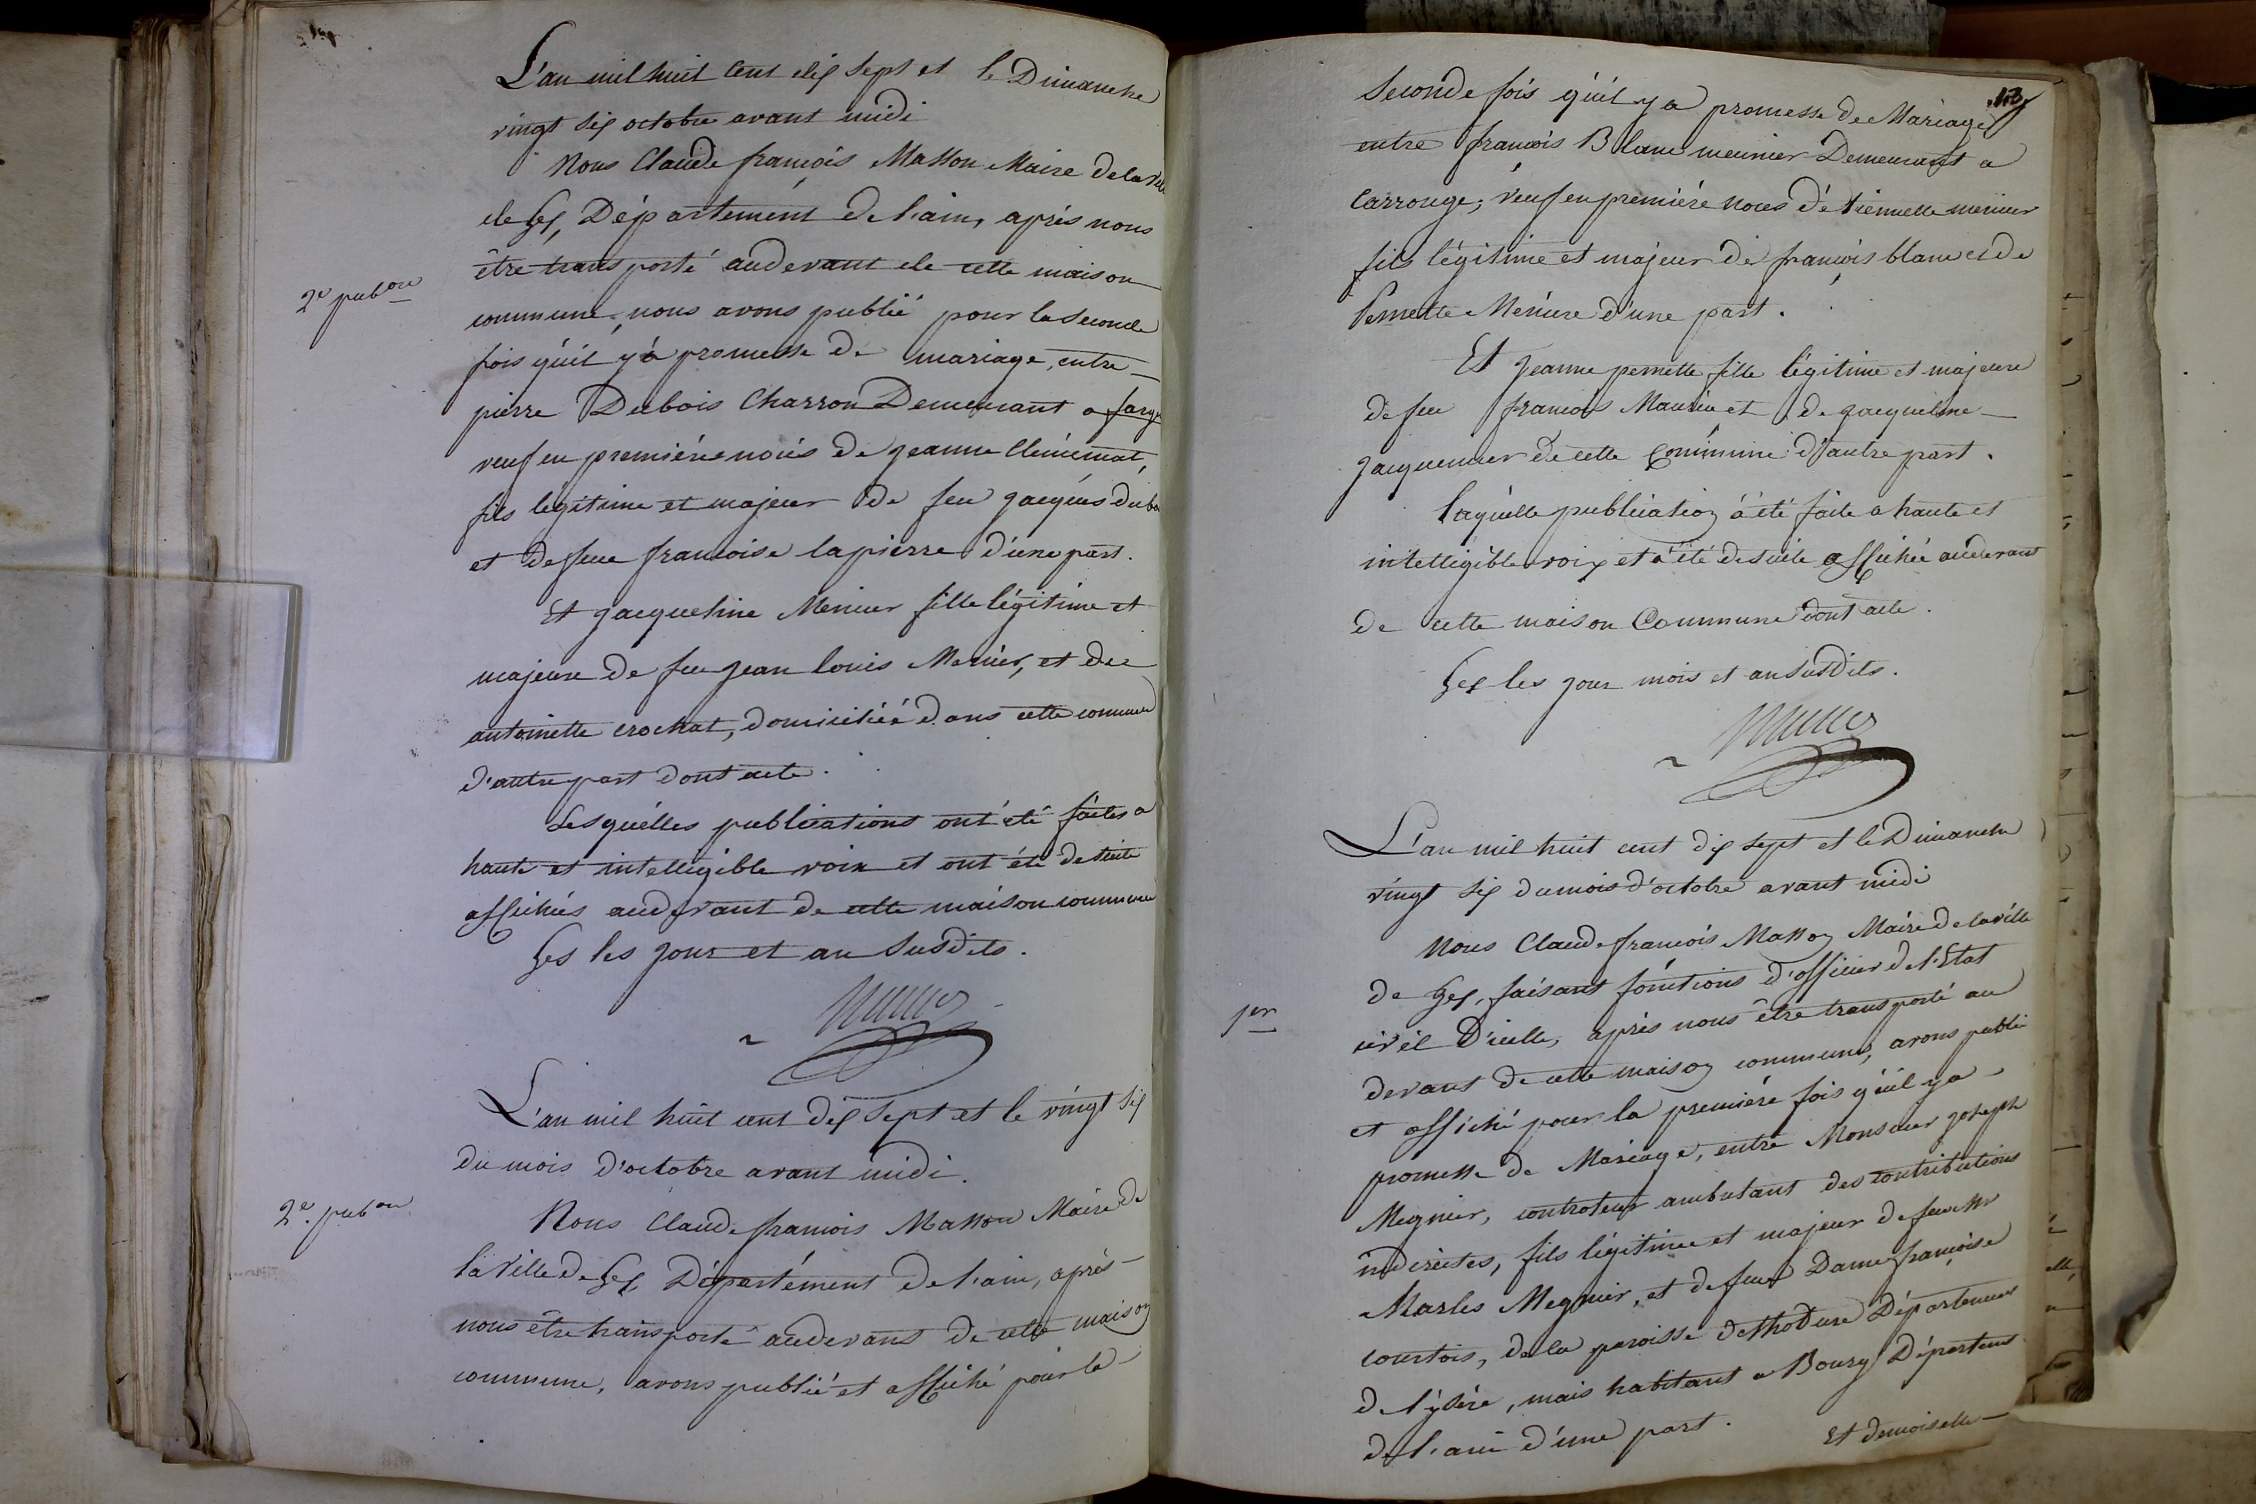 L'an mil huit cent dix sept et le Dimanche
vingt six octobre avant midi
Nous Claude françois Masson Maire de la ville
de Gex, Département de l'ain, après nous
être transporté audevant de cette maison
2e pubon
commune, nous avons publié pour la seconde
fois qu'il y a promesse de mariage, entre
pierre Dubois Charron Demeurant a farge
veuf en premières noces de jeanne Clénémat,
fils légitime et majeur de feu jacques dubois
et de feue francoise lapierre d'une part.
Et jacqueline Menier fille légitime et
majeure de feu jean louis Menier, et de
antoinette crochat, domiciliée dans cette commune
d'autre part dont acte.
Lesquelles publications ont été faites a
haute et intelligible voix et ont été de suite
affichées audevant de cette maison commune
Gex les jour et an susdits.
L'an mil huit cent dix sept et le vingt six
du mois d'octobre avant midi.
2e. pubon
Nous Claude francois Masson Maire de
la ville de Gex Département de l'ain, après
nous être transporté audevant de cette maison
commune, avons publié et affiché pour la
seconde fois qu'il y a promesse de Mariage
entre francois Blanc meunier Demeurant a
Carrouge; veuf en première noces d'étiennette menier
fils légitime et majeur de françois blanc et de
Pernette Menière d'une part.
Et jeanne pernette fille légitime et majeure
de feu francois et de jacqueline
jacquemier de cette Commune d'autre part.
laquelle publication a été faite a haute et
intelligible voix et a été de suite affichée audevant
de cette maison Commune dont acte.
Gex les jour mois et an susdits.
L'an mil huit cent dix sept et le Dimanche
vingt six du mois d'octobre avant midi
Nous Claude francois Masson Maire de la ville
de Gex, faisant fonctions d'officier de l'Etat
1ere
civil D'icelle, après nous être transporté au
devant de cette maison commune, avons publié
et affiché pour la première fois qu'il y a
promesse de Mariage, entre Monsieur joseph
Megnier, controleur ambulant des contributions
indirectes, fils légitime et majeur de feu Mr
Charles Megnier, et de feue Dame françoise
courtois, de la paroisse Département
de l'ysère, mais habitant a Bourg Département
de l'ain d'une part. Et demoiselle